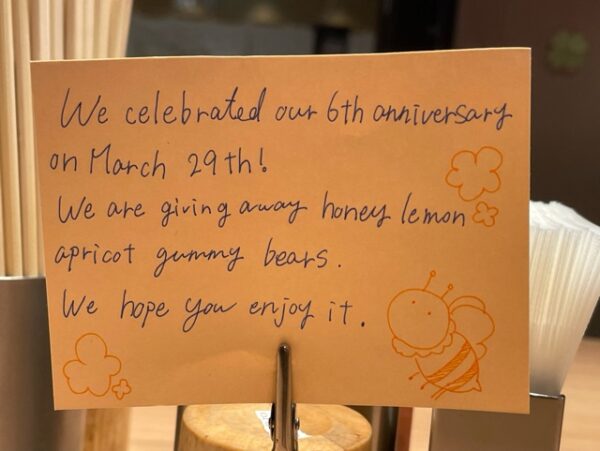 We celebrated our 6th anniversary
on March 29th!
We are giving away honey lemon
apricot gummy bears.
We hope you enjoy it.